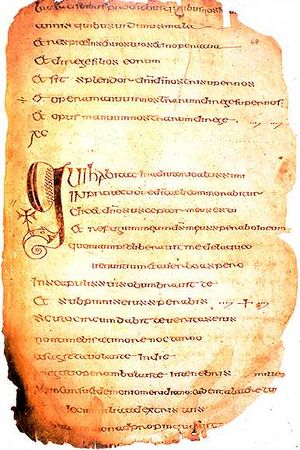 annis quibus uidimus mala
Et respice in seruos tuos et in opera tua
et dirige filios eorum
Et sit splendor dni di nostri super nos
et opera manuum nostrarum dirige super nos
et opus manuum nostrarum dirige
xc
Qui habitat in adiutorio altissimi
in protectione di caeli commorabitur
dicet dno susceptor meus es tu
et refugium meum ds meus sperabo in eum
quoniam ipse liberauit me de laqueo
uenantium et a uerbo aspero
in scapulis suis obumbrabit te
et sub pinnis eius sperabis
scuto circumdabit te ueritas eius
non timebis a timore nocturno
a sagitta uolante in die
perambulante in tenebris
meridiano cadent a latere tuo
a dextris tuis